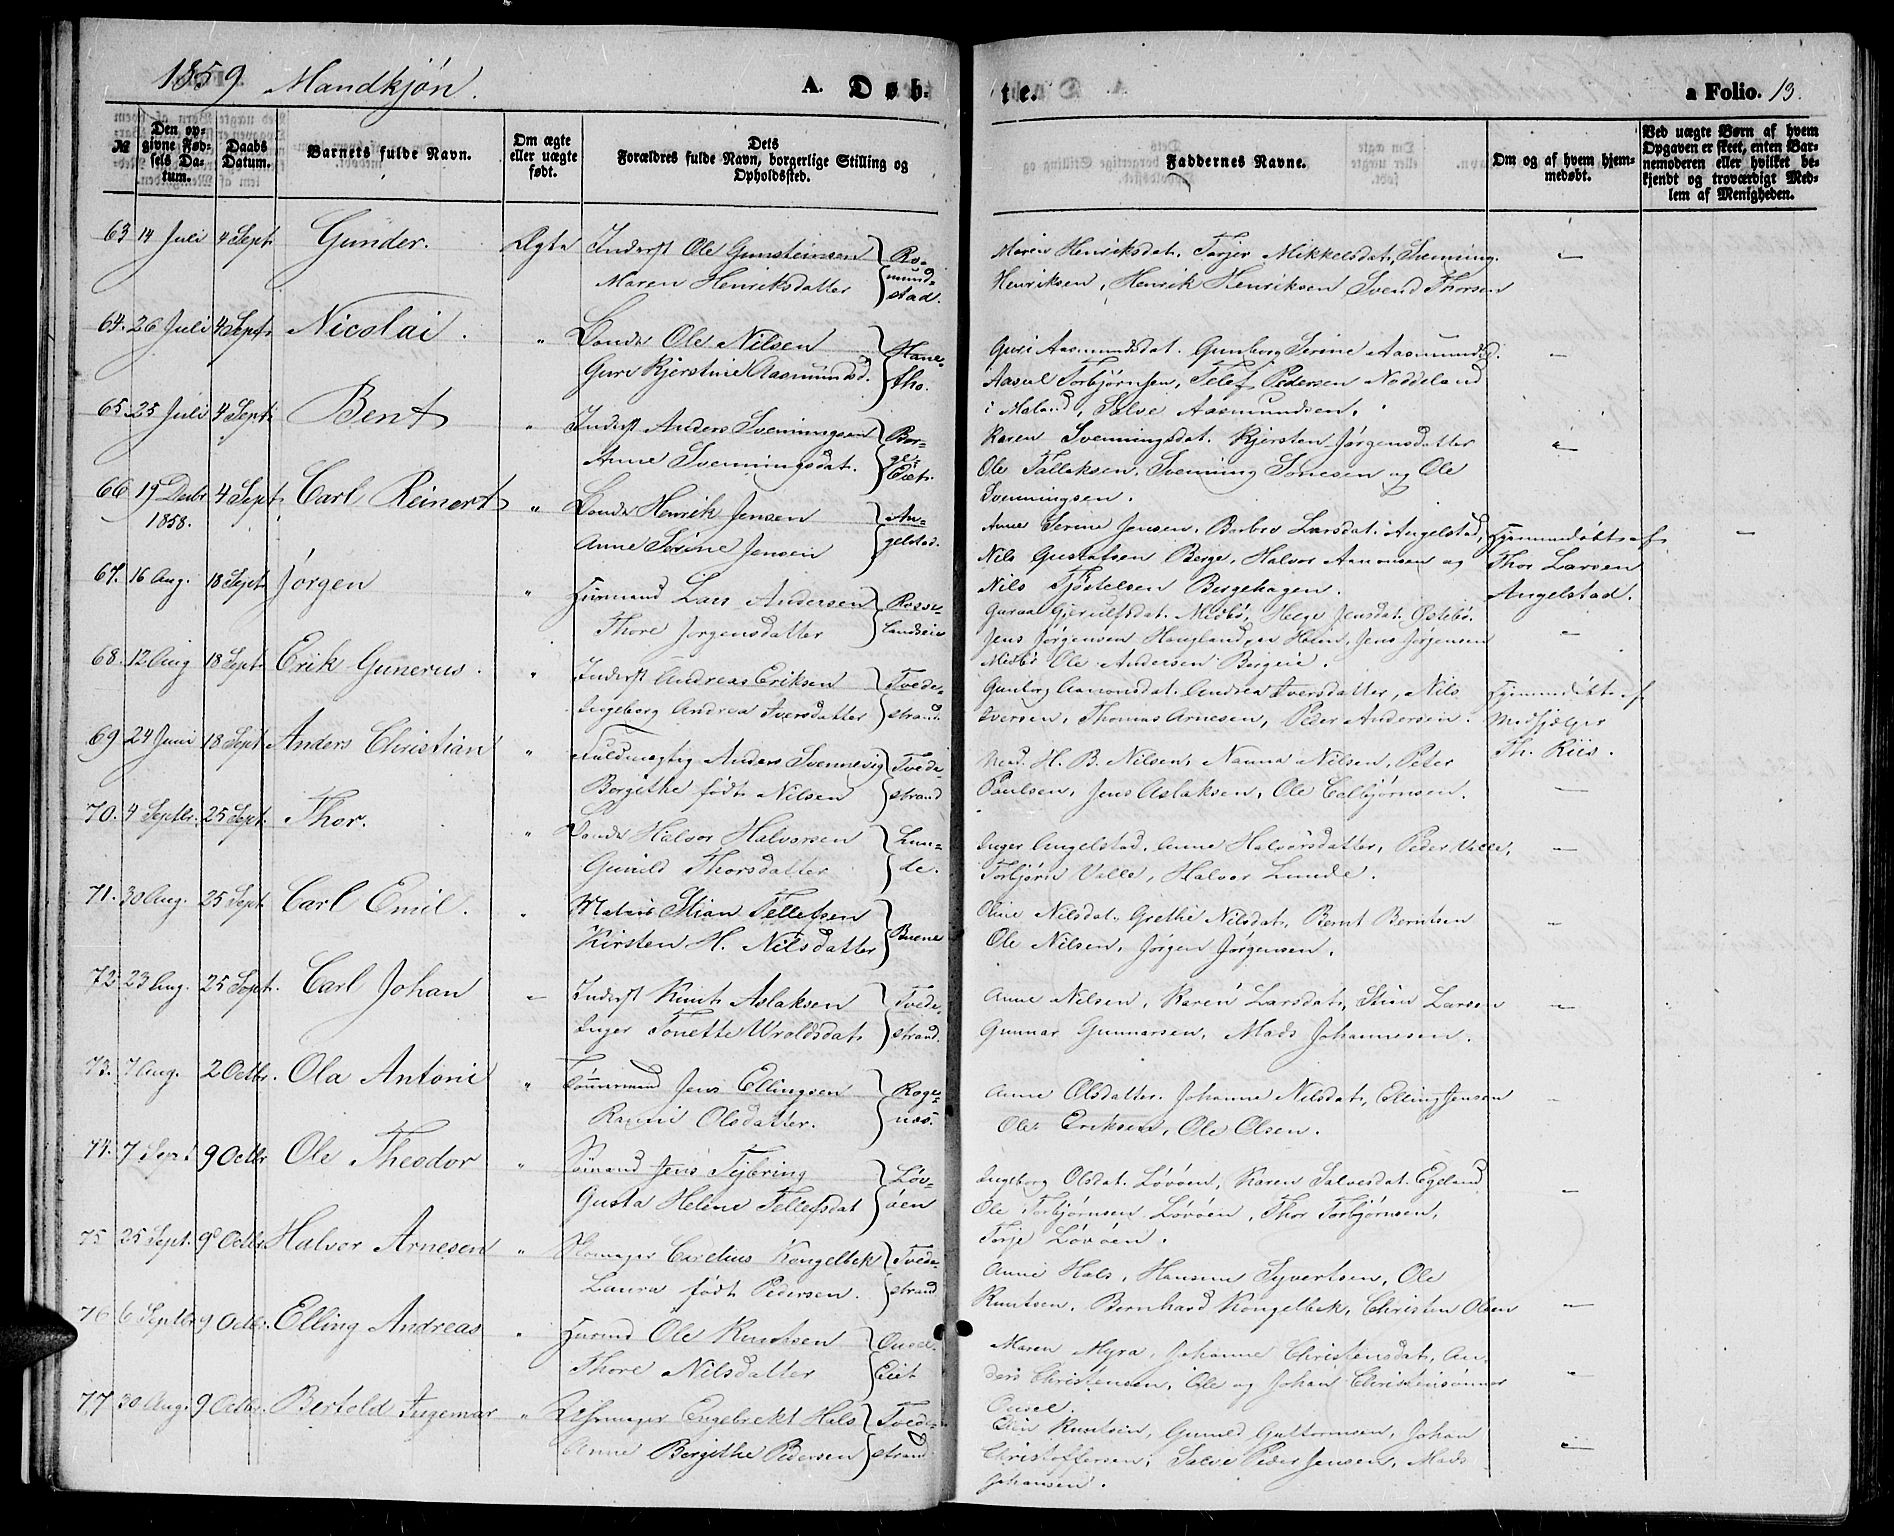 1859 Mandkjøn.
A. Døb-
te.
a Folio. 13.
№
Den op-
givne Fød-
sels Da-
tum.
Daabs
Datum.
Barnets fulde Navn.
Om ægte
eller uægte
født.
Dets
Forældres fulde Navn, borgerlige Stilling og
Opholdssted.
Faddernes Navne.
Om og af hvem hjem-
medøbt.
Ved uægte Børn af hvem
Opgaven er skeet, enten Bar-
nemoderen eller hvilket be-
kjendt og troværdigt Med-
lem af Menigheden.
63 14 Juli 4 Sept. Gunder. Ægte Inderst Ole Gunsteinsen
Maren Henriksdatter
Ro-
munds-
stad.
Maren Henriksdat. Torjer Mikkelsdat, Svenning
Henriksen, Henrik Henriksen Svend Thorsen
64. 26 Juli 4 Sept. Nicolai. " Bonde Ole Nilsen
Guri Kjerstine Aasmundsd.
Hane-
tho.
Guri Aasmundsdat. Gunborg Serine Aasmundsd.
Aasul Torbjørnsen, Telef Pedersen Noddeland
i Moland, Salve Aasmundsen.
65. 25 Juli 4 Sept. Bent " Inderst Anders Svenningsen
Anne Svenningsdat.
Bor-
ge-
Eiet.
Karen Svenningsdat. Kjersten Jørgensdatter
Ole Tallaksen, Svenning Tønesen og Ole
Svenningsen.
66 19 Decbr 4 Sept. Carl Reinert " Bonde Henrik Jensen
1858.
Anne Serine Jensen
An-
gelstad.
Anne Serine Jensen, Barbro Larsdat. Angelstad,
Nils Gustafsen Berge, Halvor Aanonsen og
Nils Tjøstelsen Bergehagen.
Hjemmedøbt af
Thor Larsen
Angelstad.
67. 16 Aug. 18 Sept. Jørgen " Huusmand Lars Andersen
Thore Jørgensdatter
Rosse-
landseie
Guraa Gjerulfsdat. Medbø, Hege Jensdat. Østebø.
Jens Jørgensen Haugland, Jens Jørgensen
Medbø Ole Andersen Bergeie.
68. 12 Aug 18 Sept. Erik Gunerus. " Inderst Andreas Eriksen
Ingeborg Andrea Iversdatter
Tvede-
strand.
Gunborg Aanonsdat. Andrea Iversdatter, Nils
Iversen, Thomas Arnesen, Peder Andersen.
Hjemmedøbt af
Medhjælper
Th. Riis.
69 24 Juni 18 Sept Anders Christian " Fuldmægtig Anders Svennevig
Borgithe født Nilsen
Tvede-
strand
Mad. H. B. Nilsen, Nanna Nilsen, Peter
Paulsen, Jens Aslaksen, Ole Eelbjørnsen.
70. 4 Septbr. 25 Sept. Thor. " Bonde Halvor Halvorsen
Gunild Thorsdatter
Lun-
de.
Inger Angelstad, Anne Halvorsdatter, Peder Valle,
Torbjørn Valle, Halvor Lunde.
71. 30 Aug. 25 Sept. Carl Emil. " Matros Stian Tellefsen
Kirsten H. Nilsdatter
Buene
Oline Nilsdat. Grethe Nilsdat, Bernt Berntsen
Ole Nilsen, Jørgen Jørgensen.
72. 23 Aug. 25 Sept. Carl Johan " Inderst Knut Aslaksen
Inger Tonette Wroldsdat.
Tvede-
strand.
Anne Nilsen, Karen Larsdat, Stian Larsen
Gunnar Gunnarsen, Mads Johannesen.
73. 7 Aug. 2 Octbr. Ola Antoni " Tømmermand Jens Ellingsen
Ragni Olsdatter.
Roge-
næs.
Anne Olsdatter. Johanne Nilsdat, Elling Jensen
Ole Eriksen, Ole Olsen.
74. 7 Sept 9 Octbr Ole Theodor " Sømand Jens Fejering
Gusta Helene Tellefsdat
Løv-
øen
Ingeborg Olsdat. Løvøen, Karen Salvesdat. Egeland
Ole Torbjørnsen Løvøen, Thor Torbjørnsen,
Torje Løvøen.
75 25 Sept. 9 Octbr. Halvor Arnesen " Skomager Carelius Kongelbek
Laura født Pedersen.
Tvede-
strand
Anne Hals, Hansine Syvertsen, Ole
Knutsen, Bernhard Kongelbek, Christen Olsen
76 6 Septbr 9 Octbr. Elling Andreas " Huusmd Ole Knutsen
Thore Nilsdatter
Ousel
Eiet
Maren Myra, Johanne Christensdat, An-
ders Christensen, Ole og Johan Christensønner
Ousel.
77 30 Aug. 9 Octbr. Bertold Ingemar " Uhrmager Engebrekt Hals
Anne Bergithe Pedersen
Tvede-
strand
Elen Knutsen, Gunild Guttormsen, Johan
Christoffersen, Salve Peder Jensen, Mads
Johansen.